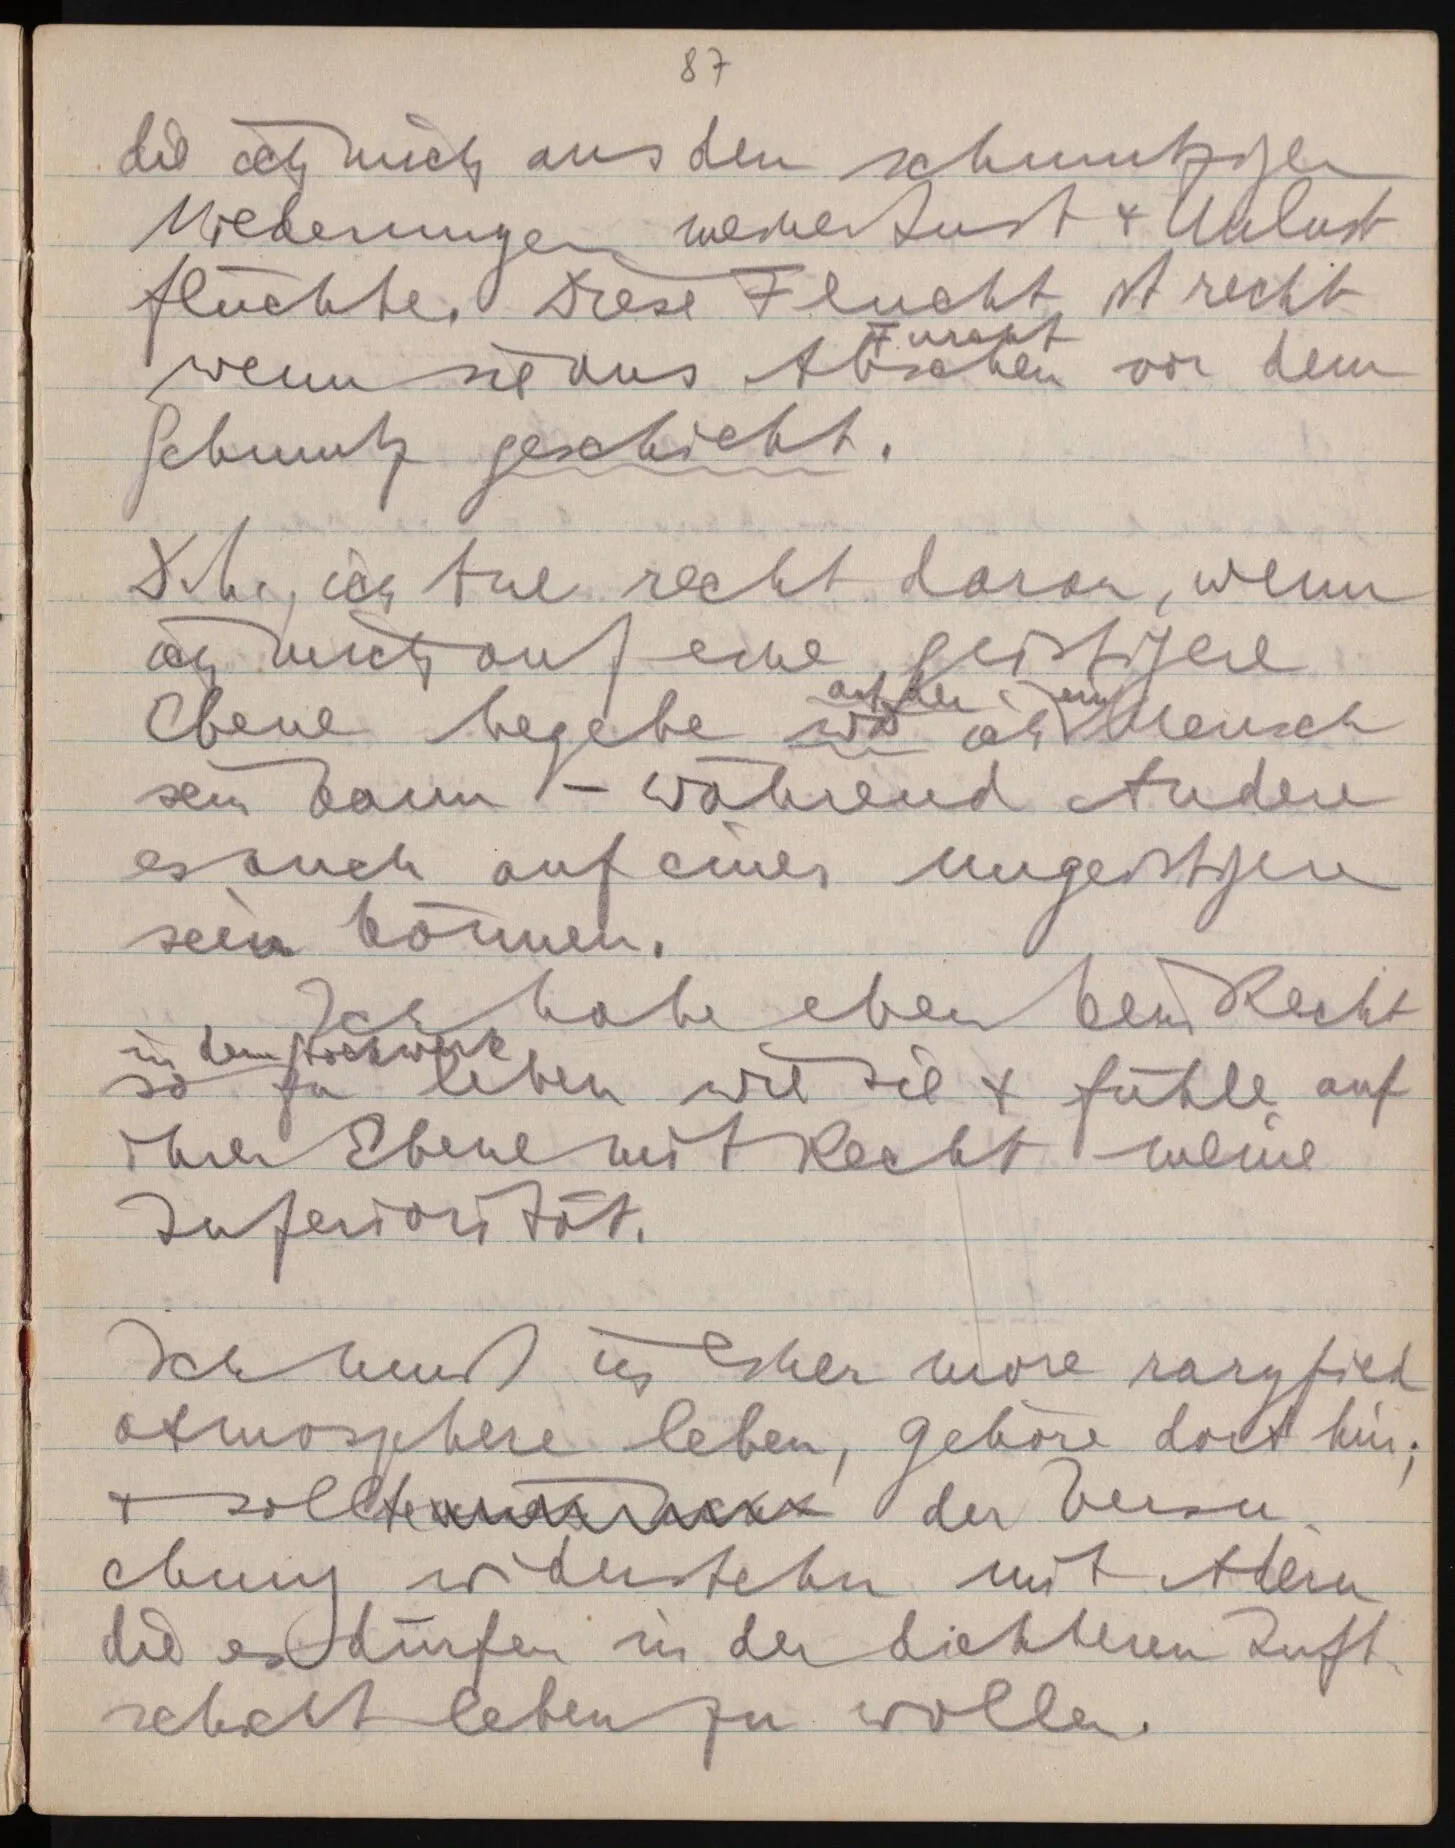 87
die ich mich aus den schmutzigen
Niederungen meiner Lust & Unlust
flüchte. Diese Flucht ist recht
Furcht
wenn sie aus Abscheu vor dem
Schmutz geschieht.
D.h., ich tue recht daran, wenn
ich mich auf eine geistigere
auf der ein
Ebene begebe wo ich Mensch
sein kann – während Andere
es auch auf einer ungeistigern
sein können.
Ich habe eben kein Recht
in dem Stockwerk
so zu leben wie sie & fühle auf
ihrer Ebene mit Recht meine
Inferiorität.
Ich muß in einer more raryfied
atmosphere leben, gehöre dort hin;
& sollte der Versu-
chung widerstehn mit Adern
die es dürfen in der dichteren Luft-
schicht leben zu wollen.